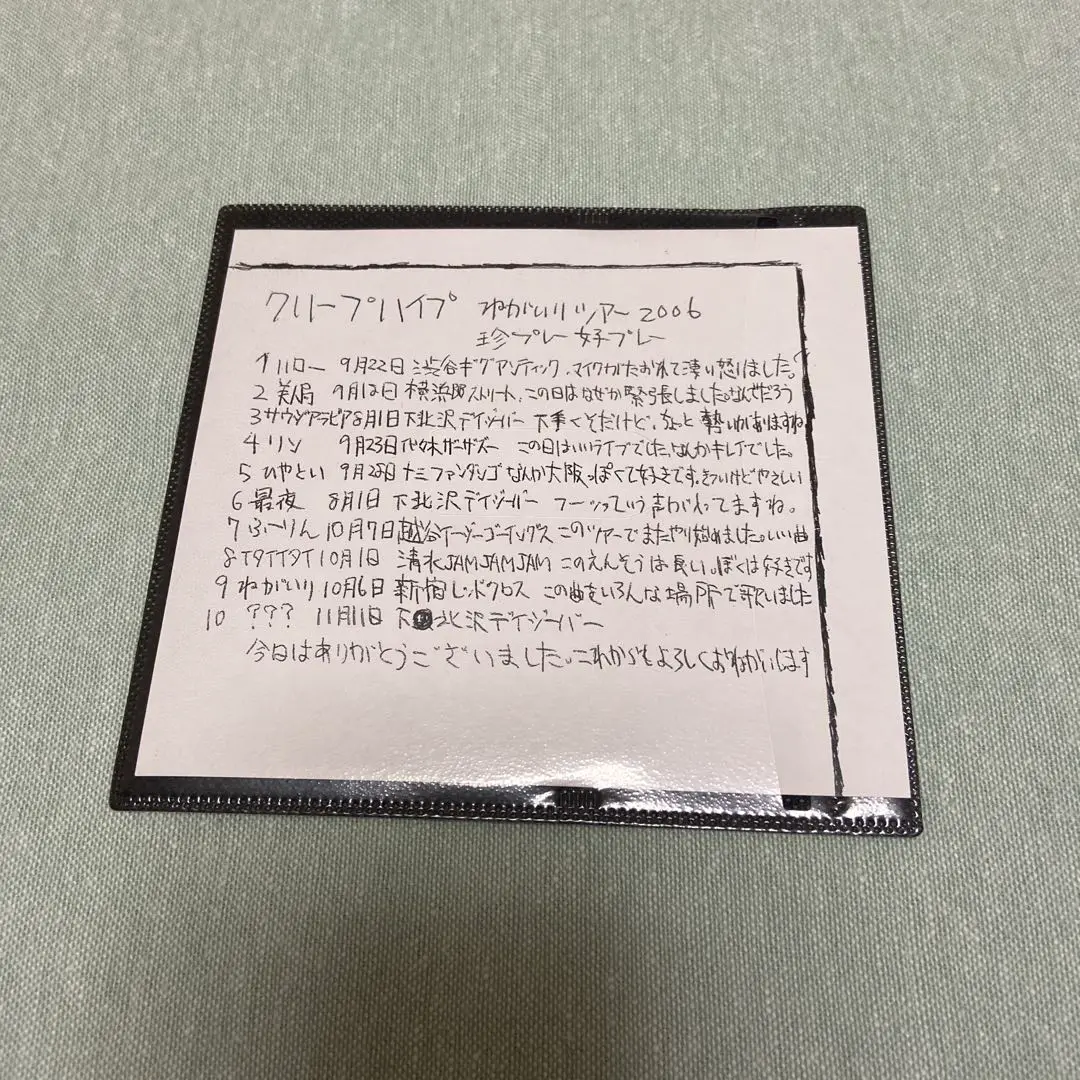 クリープハイプ ねがいりツアー2006
珍プレー好プレー
1 ハロー 9月22日 渋谷ギグアンティック、マイクがたおれて凄い怒りました。
2 美局 9月12日 横浜 ストリート、この日はなぜか緊張しました。なんでだろう
3 サウジアラビア 8月1日 下北沢デイジーバー 下手くそだけど、 勢いがありますね
4 リンゴ 9月23日 代々木ザーザズー この日はいいライブでした。なんかキレイでした。
5 ひやとい 9月25日 十三ファンダンゴ なんか大阪っぽくて好きです。きついけどやさしい
6 最夜 8月1日 下北沢デイジーバー フーッっていう声がわってますね。
7 ふーりん 10月7日 越谷イージーゴーイングス このツアーでまたやり始めました。いい曲
8 イタイイタイ 10月1日 清水JAMJAMJAM このえんそうは長い。ぼくは好きです
9 ねがいり 10月6日 新宿レッドクロス この曲をいろんな場所で歌いました
10 ??? 11月11日 下北沢デイジーバー
今日はありがとうございました。これからもよろしくおねがいします